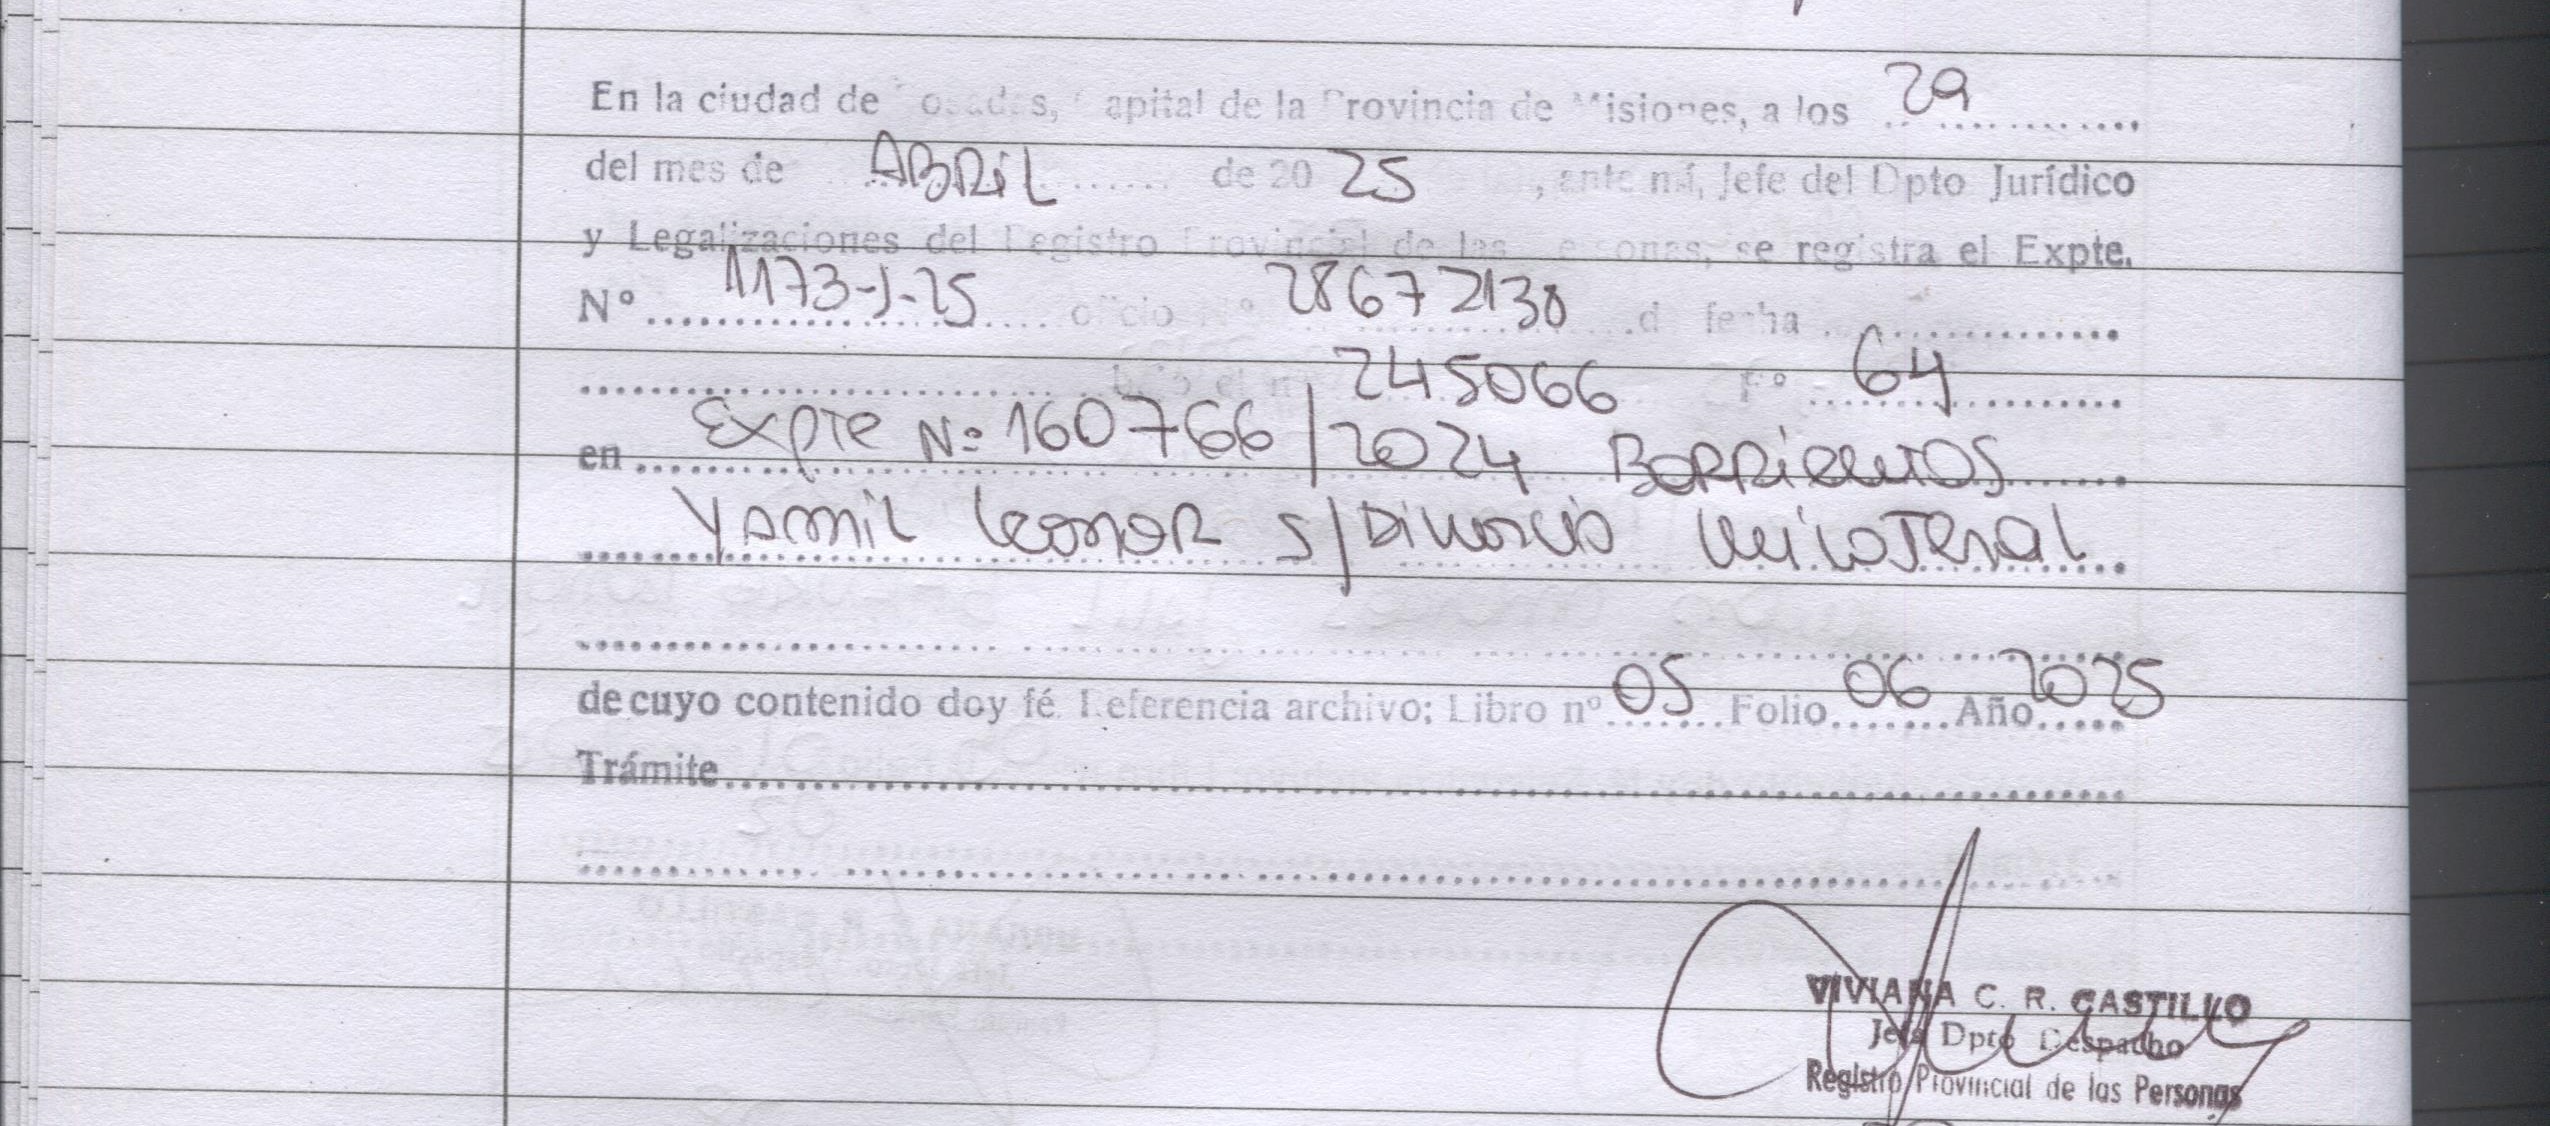 En la ciudad de Posadas, Capital de la Provincia de Misiones, a los 29
del mes de ABRiL de 20 25, ante mí, Jefe del Dpto Jurídico
y Legalizaciones del Registro Provincial de las Personas, se registra el Expte.
Nº 1173-J-25 oficio Nº 28672130 de fecha
bajo el nº 245066 Fº 64
en Expte Nº 160766/2024 BARRiENTOS
YAMiL LEONOR S/Divorcio UNiLATERAL
de cuyo contenido doy fé. Referencia archivo: Libro nº 05 Folio 06 Año 2025
Trámite
VIVIANA C. R. CASTILLO
Jefa Dpto Despacho
Registro Provincial de las Personas